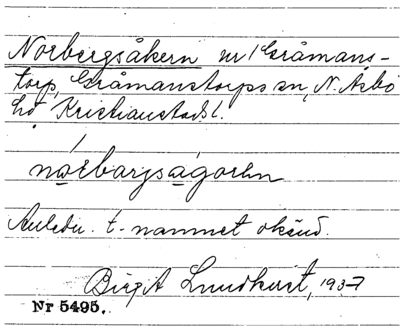 Norbergsåkern nr 1 Gråmans-
torp, Gråmanstorps sn, N. Åsbo
hd Kristianstads l.
norbarjsagorhn
Anledn. t. namnet okänd.
Birgit Lundkvist, 1937
Nr 5495.